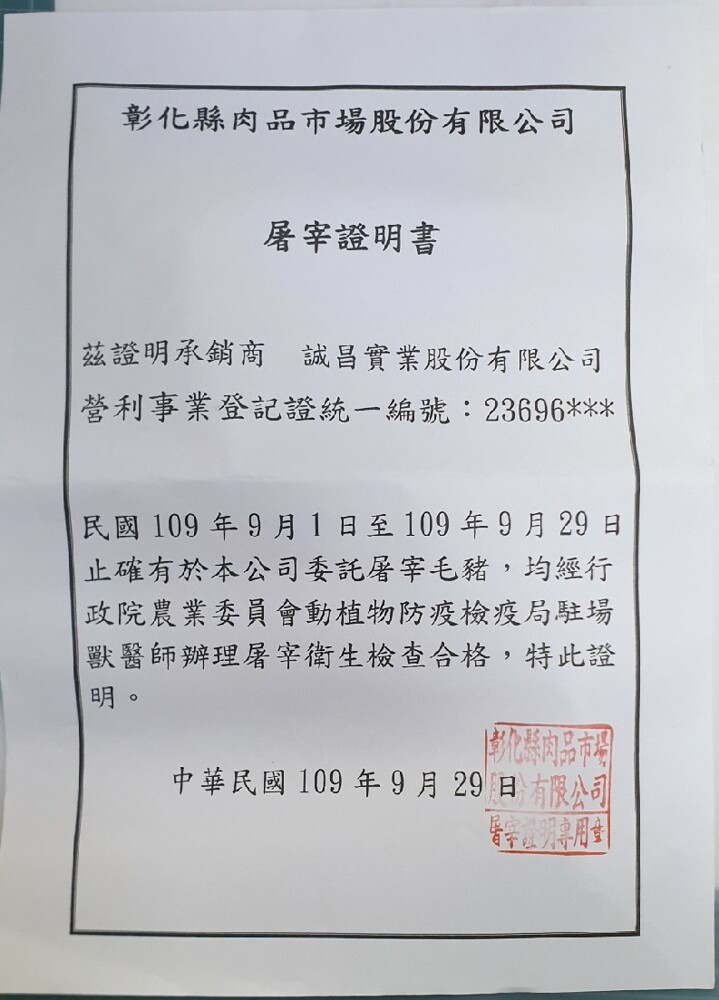 彰化縣肉品市場股份有限公司
屠宰證明書
茲證明承銷商 誠昌實業股份有限公司
營利事業登記證統一編號：23696***
民國 109 年 9 月 1 日至 109 年 9 月 29 日
止確有於本公司委託屠宰毛豬，均經行
政院農業委員會動植物防疫檢疫局駐場
獸醫師辦理屠宰衛生檢查合格，特此證
明。
中華民國 109 年 9 月 29 日
彰化縣肉品市場
股份有限公司
屠宰證明專用章